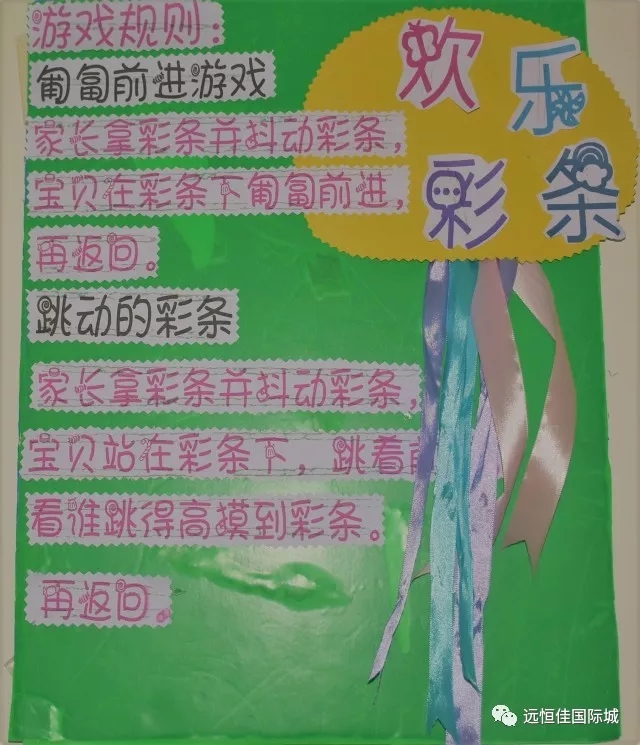 游戏规则：
欢乐
彩条
匍匐前进游戏
家长拿彩条并抖动彩条，
宝贝在彩条下匍匐前进，
再返回。
跳动的彩条
家长拿彩条并抖动彩条，
宝贝站在彩条下，跳着
看谁跳得高摸到彩条。
再返回。
远恒佳国际城